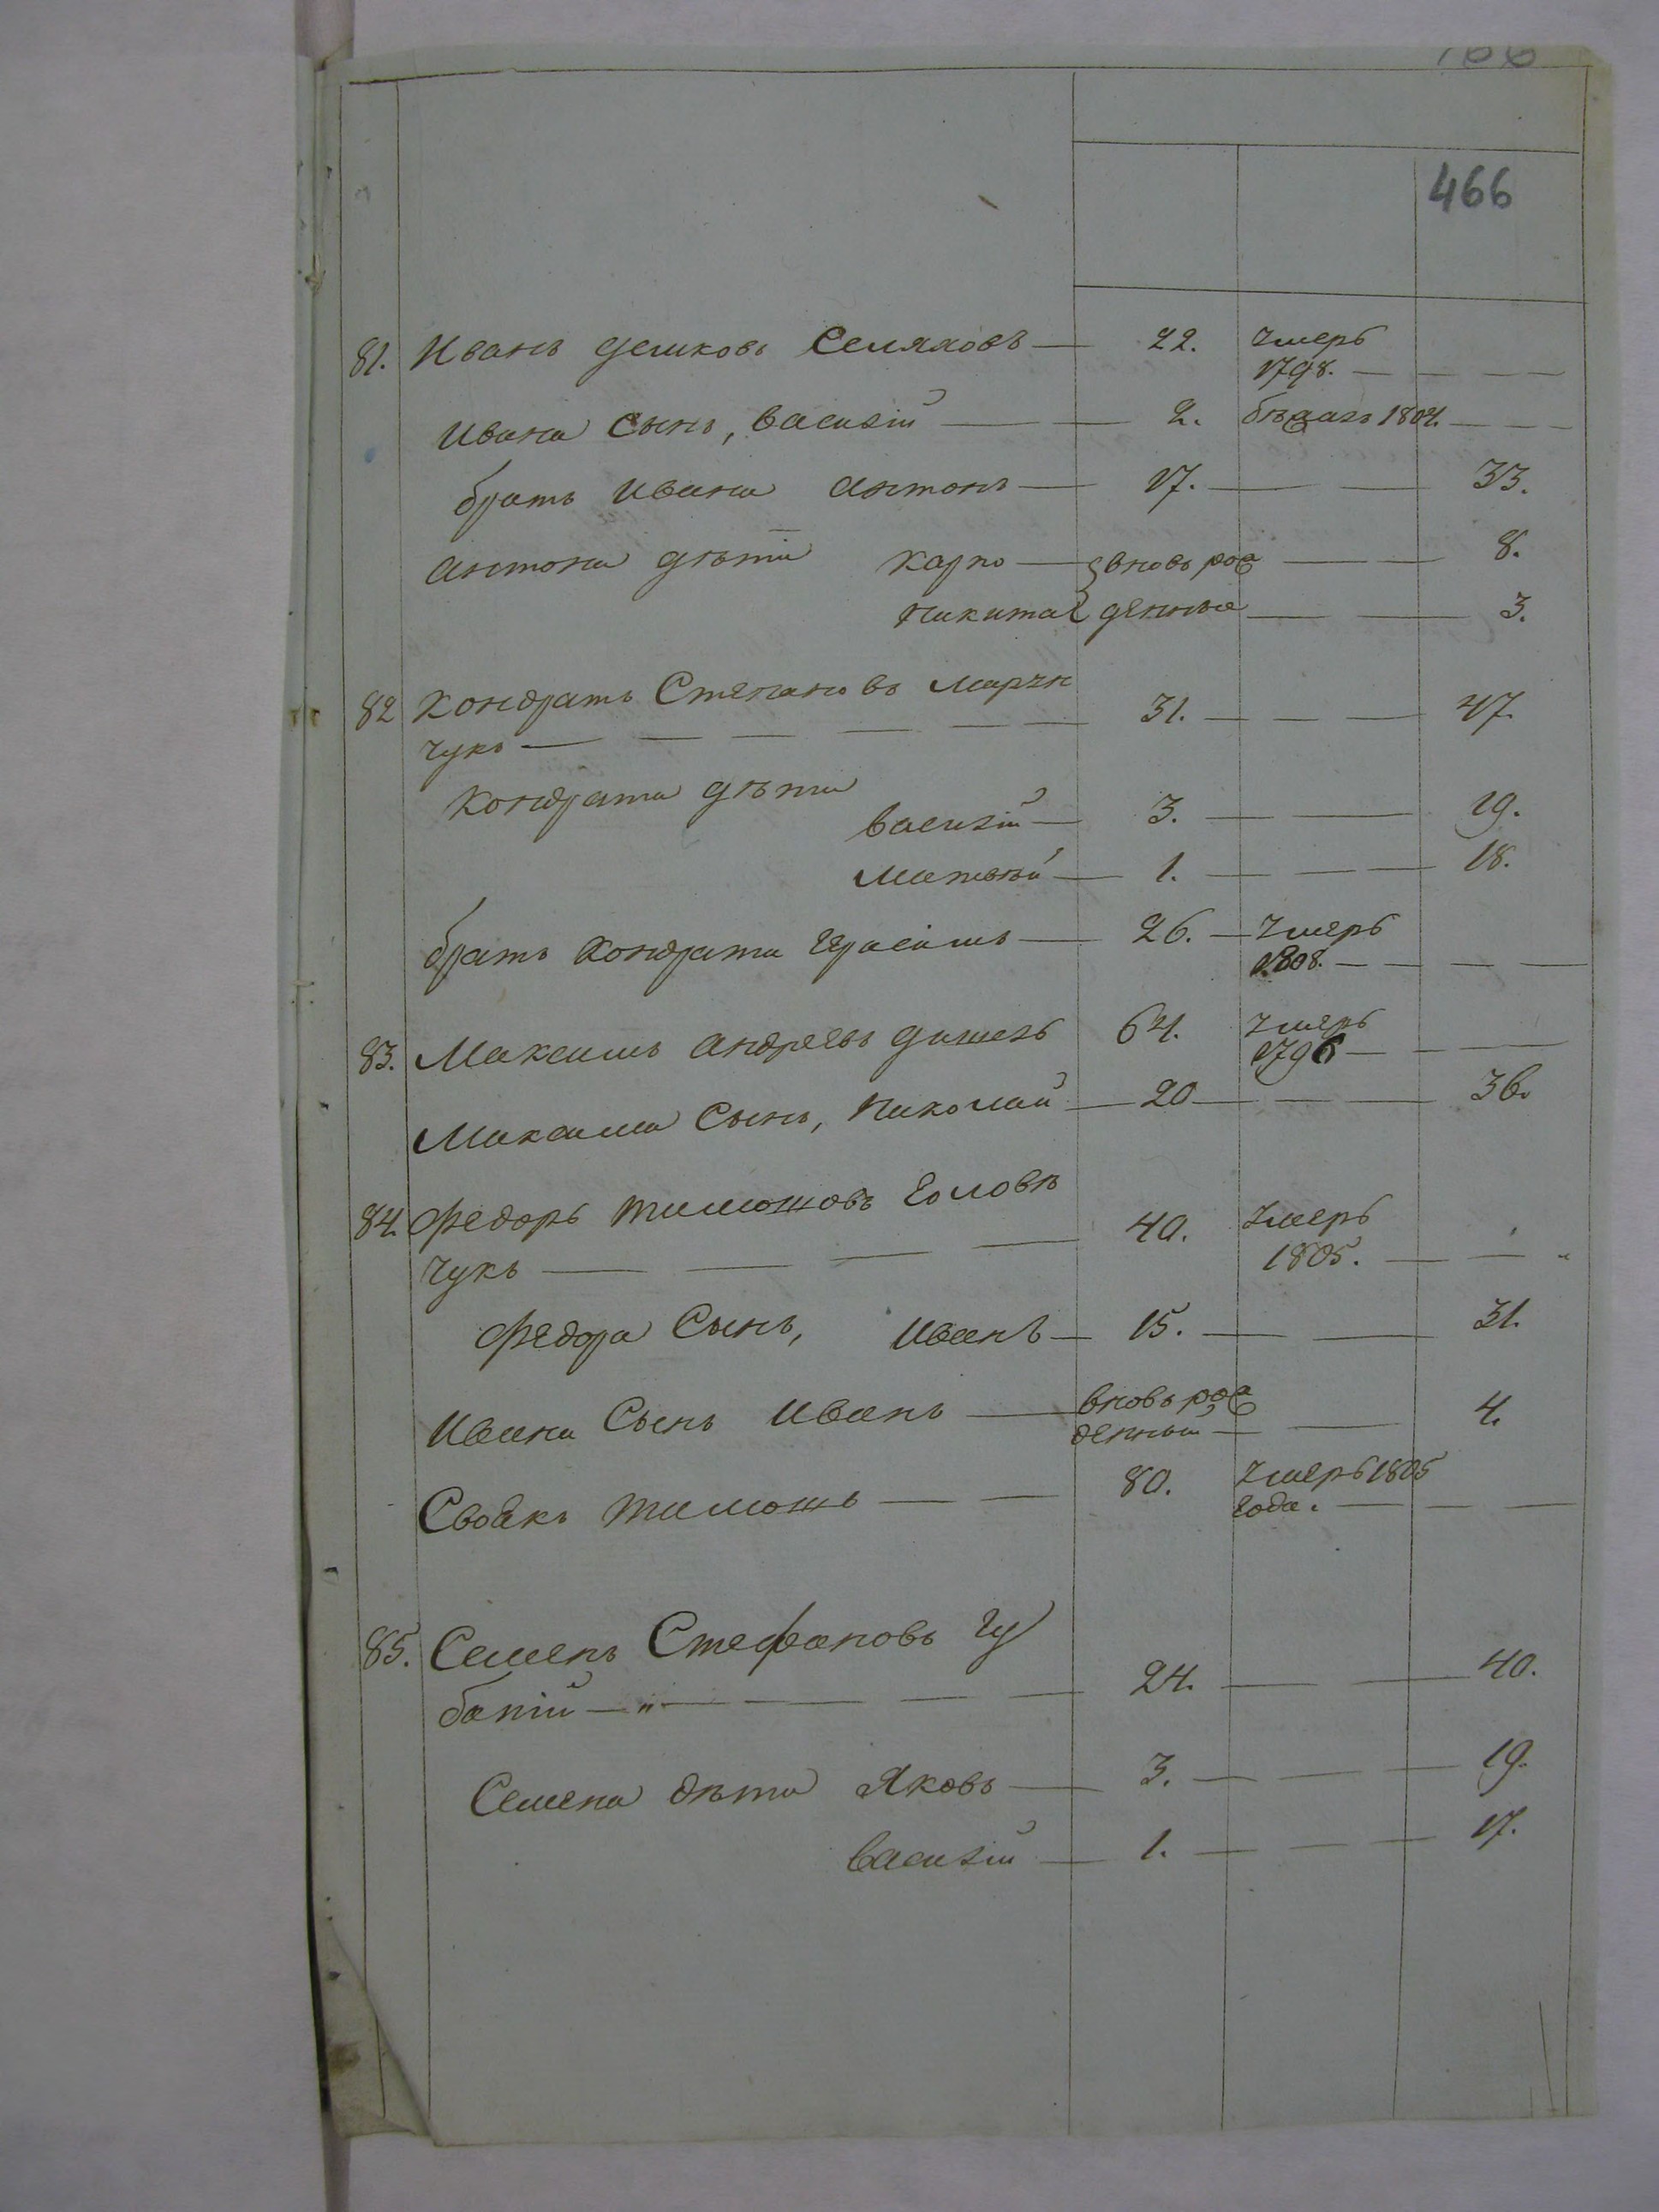 466
81. Иванъ Демковъ Семяковъ — 22. Умерь
1798. — — —
Ивана Сынъ, Василій — 2. бѣжалъ 1804. — — —
братъ Ивана Антонъ — 17. — — — 33.
Антона дѣти Карпо — вновь рож — — 8.
Никита денные — — — 3.
82 Кондратъ Степановъ Марчн
чукъ — — — — — — 31. — — — 47.
Кондрата дѣти
Василій — 3. — — 19.
Матвѣй — 1. — — — 18.
братъ Кондрата Герасимъ — 26. — Умерь
1808. — — — —
83. Максимъ Андреевъ 64. Умерь
1796 — — —
Максима Сынъ, Николай — 20 — — — 36.
84. Федоръ Тимошовъ Головѣ
чукъ — — — — 40. Умерь
1805. — — -
Федора Сынъ, Иванъ — 15. — — 31.
Ивана Сынъ Иванъ — вновь рож
денный — — 4.
Своякъ Тимошь — — 80. Умерь 1805
года. — — —
85. Семенъ Стефановъ Гу
баній — „ — — — — 24. — — — 40.
Семена дѣти Яковъ — 3. — — — 19.
Василій — 1. — — — 17.